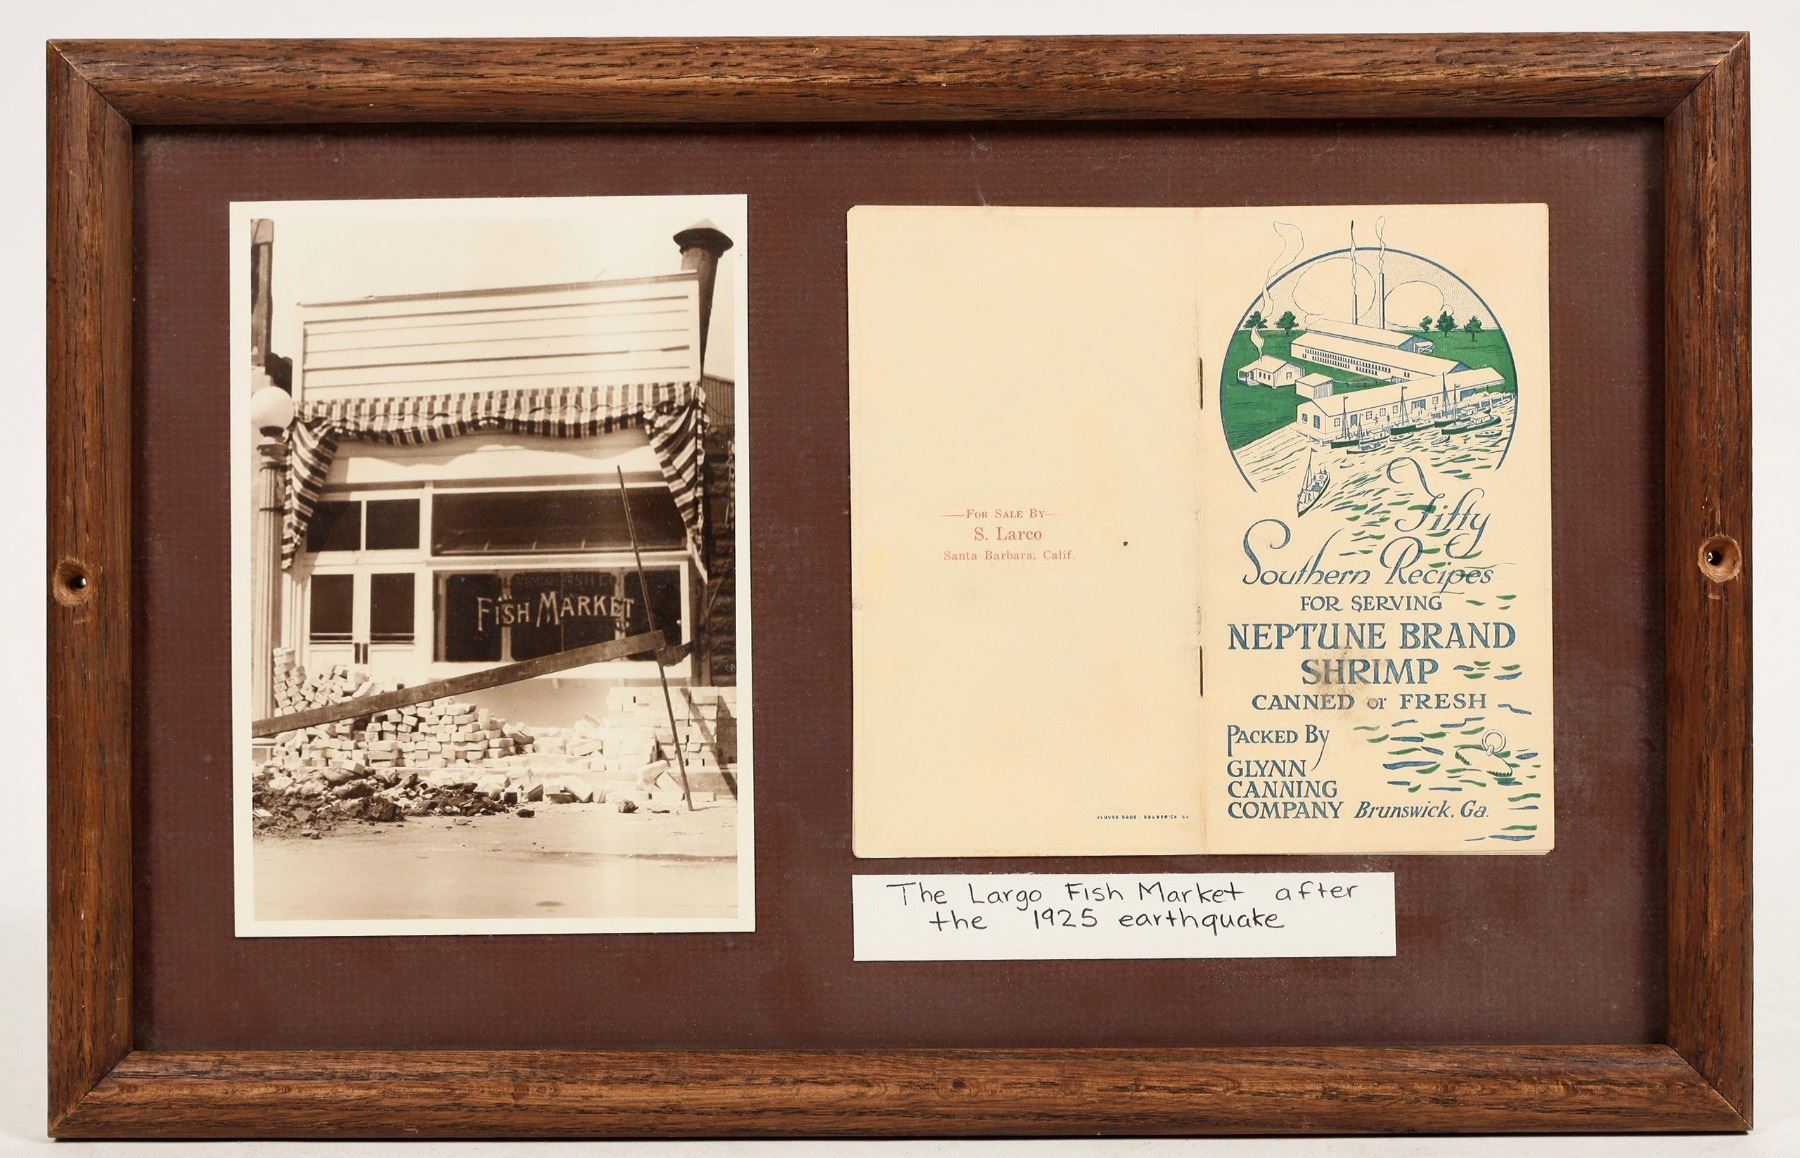 FISH MARKET
FOR SALE BY
S. Larco
Santa Barbara, Calif.
GLOVER BROS. BRUNSWICK GA
Fifty
Southern Recipes
FOR SERVING
NEPTUNE BRAND
SHRIMP
CANNED or FRESH
PACKED BY
GLYNN
CANNING
COMPANY Brunswick, Ga.
The Largo Fish Market after
the 1925 earthquake